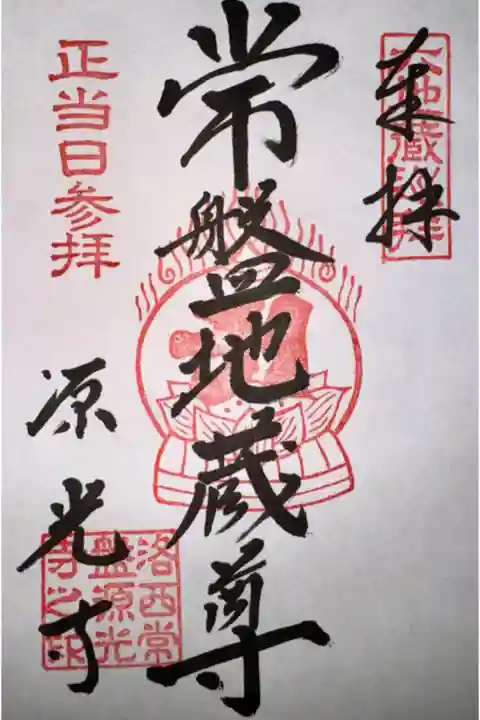 奉拝
六地蔵巡拝
常盤地蔵尊
正当日参拝
源光寺
洛西常
盤源光
寺之印